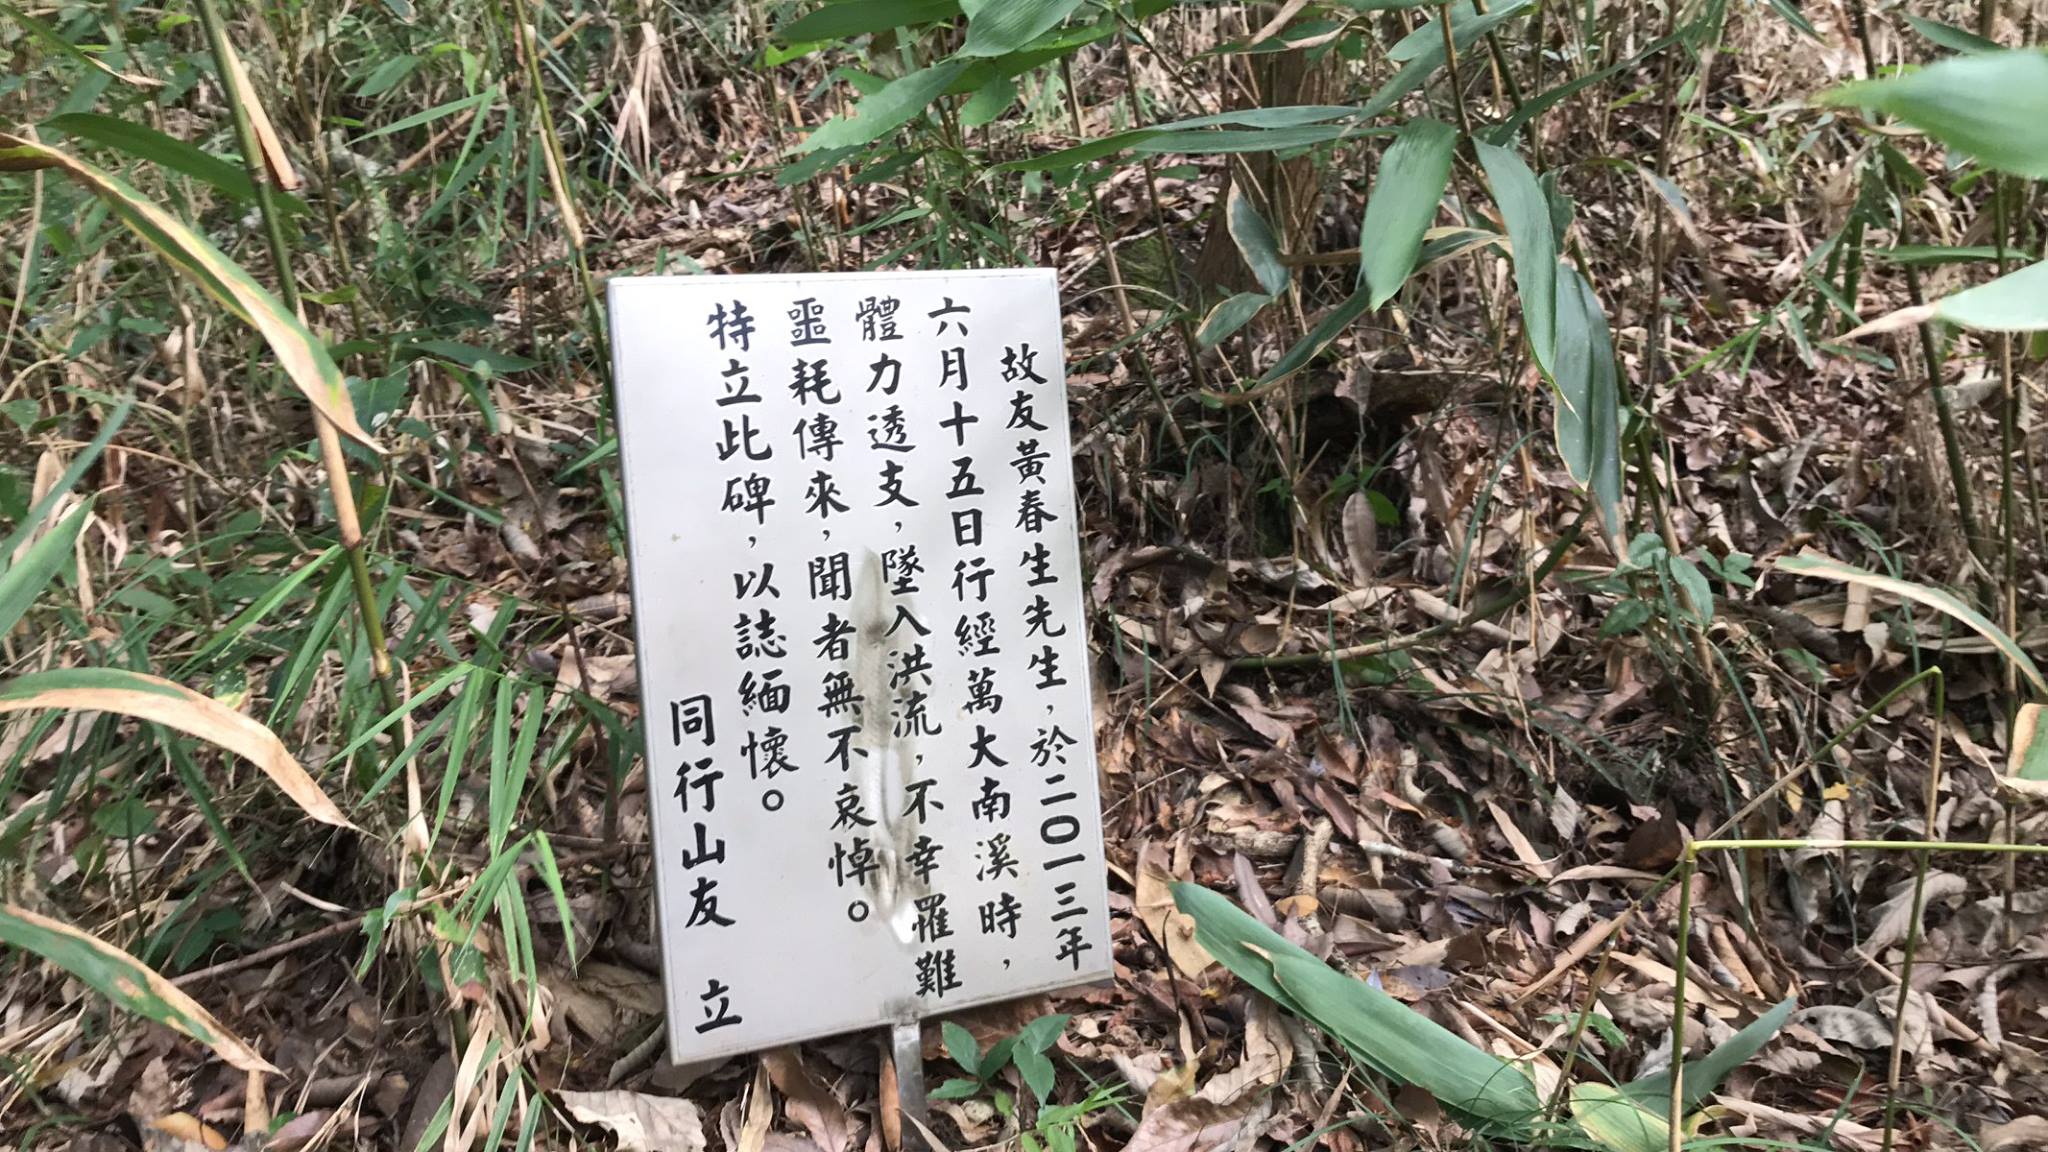 故友黃春生先生，於二〇一三年
六月十五日行經萬大南溪時，
體力透支，墜入洪流，不幸罹難
噩耗傳來，聞者無不哀悼。
特立此碑，以誌緬懷。
同行山友 立